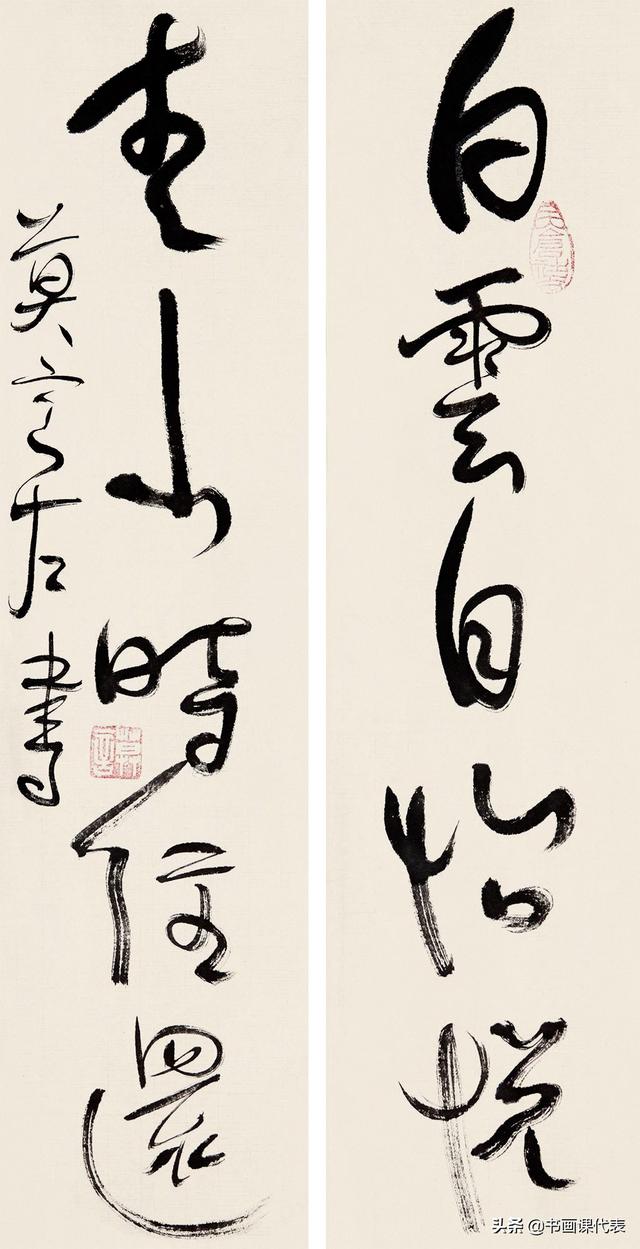 白雲自怡悦
青山時往還
莫言左書
莫言
头条 @书画课代表